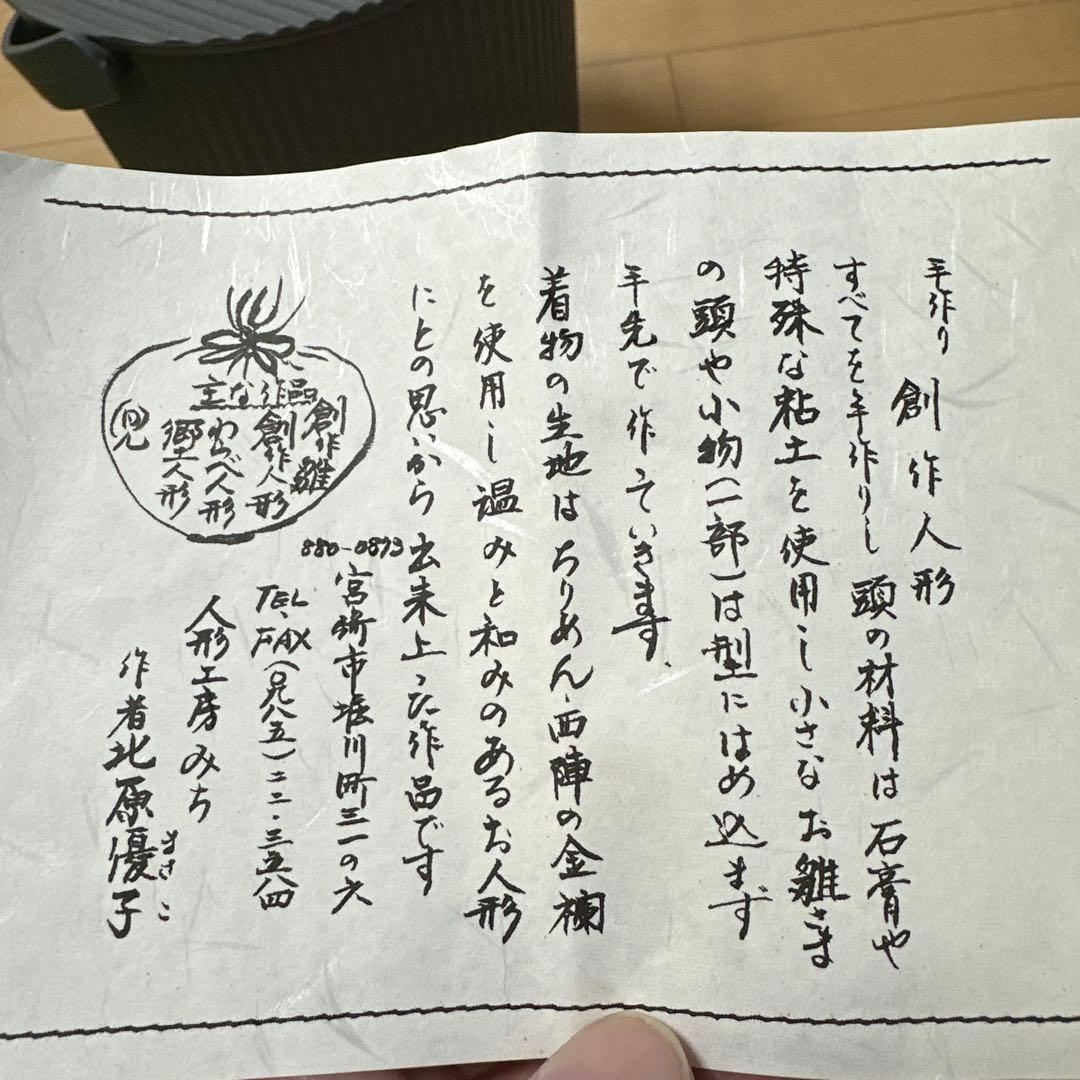 手作り 創作人形
すべてを手作りし 頭の材料は 石膏や
特殊な粘土を使用し 小さなお雛さま
の頭や小物(一部)は型にはめ込まず
手先で作っていきます、
着物の生地は ちりめん・西陣の金襴
を使用し 温みと和みのあるお人形
にとの思いから 出来上った作品です
880-0873
宮崎市堀川町三一の六
TEL・
FAX(〇九八五)二二・三五八四
人形工房みち
作者 北原優子
まさこ
主な作品
創作雛
創作人形
わらべ人形
郷土人形